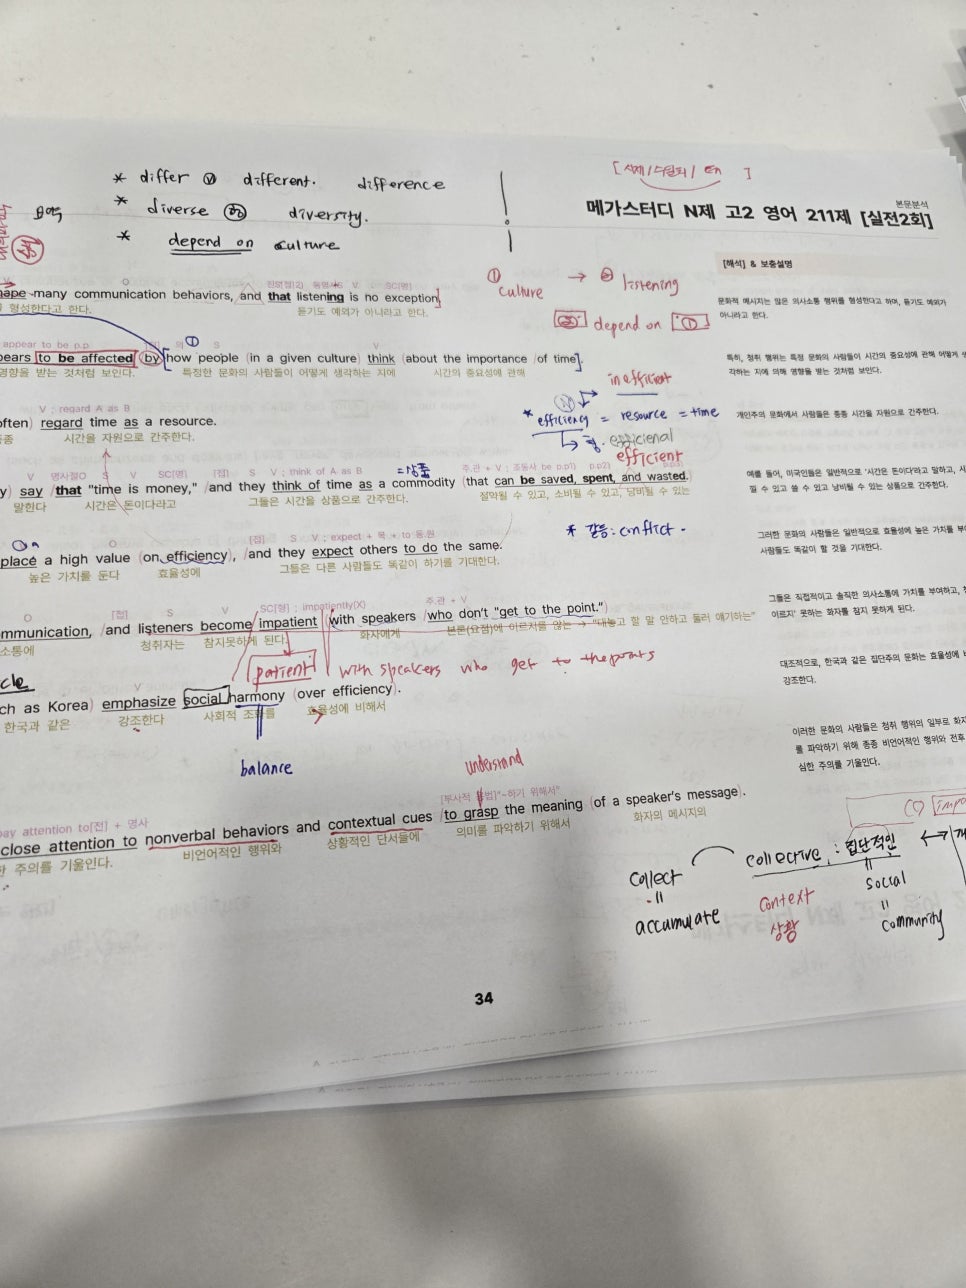 * differ different. difference
* diverse diversity.
* depend on culture
본문분석
메가스터디 N제 고2 영어 211제 [실전2회]
[해석] & 보충설명
① culture → ② listening
② depend on ①
many communication behaviors, and that listening is no exception]
형성한다고 한다. 듣기도 예외가 아니라고 한다.
문화적 메시지는 많은 의사소통 행위를 형성한다고 하며, 듣기도 예외가
아니라고 한다.
appear to be p.p
to be affected (by) how people (in a given culture) think (about the importance /of time].
영향을 받는 것처럼 보인다. 특정한 문화의 사람들이 어떻게 생각하는 지에 시간의 중요성에 관해
특히, 청취 행위는 특정 문화의 사람들이 시간의 중요성에 관해 어떻게
각하는 지에 의해 영향을 받는 것처럼 보인다.
inefficient
* efficiency = resource = time
efficienal
efficient
V ; regard A as B
regard time as a resource.
시간을 자원으로 간주한다.
개인주의 문화에서 사람들은 종종 시간을 자원으로 간주한다.
V 명사절O S V SC(명) [접] S V ; think of A as B =상품 주.관 + V ; 조동사 be p.p1) p.p2)
say /that "time is money," /and they think of time as a commodity (that can be saved, spent, and wasted.)
말한다 시간은 돈이다라고 그들은 시간을 상품으로 간주한다. 절약될 수 있고, 소비될 수 있고, 낭비될 수 있는
예를 들어, 미국인들은 일반적으로 '시간은 돈이다'라고 말하고,
낄 수 있고 쓸 수 있고 낭비될 수 있는 상품으로 간주한다.
* 갈등: conflict
O [접] S V ; expect + 목 + to 동.원
place a high value (on efficiency), /and they expect others to do the same.
높은 가치를 둔다 효율성에 그들은 다른 사람들도 똑같이 하기를 기대한다.
그러한 문화의 사람들은 일반적으로 효율성에 높은 가치를
사람들도 똑같이 할 것을 기대한다.
O [접] S V SC[형] ; impatiently(X) 주.관 + V
/and listeners become /impatient (with speakers /who don't "get to the point.")
소통에 청취자는 참지못하게 된다. 화자에게 본론(요점)에 이르지를 않는 → "대놓고 할 말 안하고 돌려 얘기하는"
그들은 직접적이고 솔직한 의사소통에 가치를 부여하고,
이르지' 못하는 화자를 참지 못하게 된다.
patient with speakers who get to the points
V
as Korea) emphasize social harmony (over efficiency).
한국과 같은 강조한다 사회적 조화를 효율성에 비해서
대조적으로, 한국과 같은 집단주의 문화는 효율성에
강조한다.
balance
understand
이러한 문화의 사람들은 청취 행위의 일부로
를 파악하기 위해 종종 비언어적인 행위와
심한 주의를 기울인다.
pay attention to[전] + 명사 "~하기 위해서"
close attention to nonverbal behaviors and contextual cues /to grasp the meaning (of a speaker's message).
주의를 기울인다. 비언어적인 행위와 상황적인 단서들에 의미를 파악하기 위해서 화자의 메시지의
collect collective : 집단적인
= accumulate
context 상황
= social
= community
34